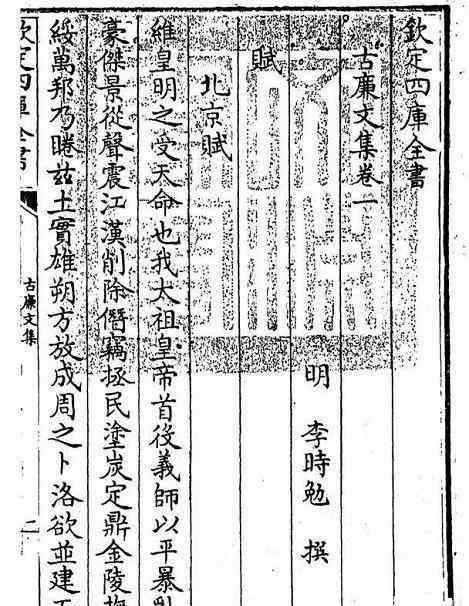 欽定四庫全書
古廉文集卷一
明 李時勉 撰
賦
北京賦
維皇明之受天命也我太祖皇帝首役義師以平暴亂
豪傑景從聲震江漢削除僭竊拯民塗炭定鼎金陵撫
綏萬邦乃睠兹土實雄朔方放成周之卜洛欲並建
欽定四庫全書
古廉文集
二